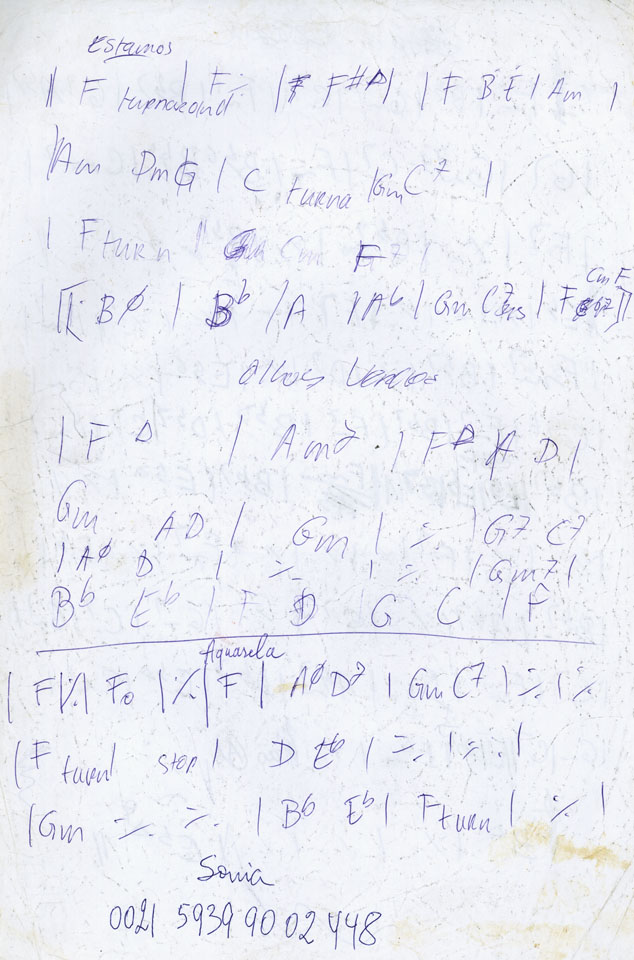 Estamos
|| F turnaround | F ∕. | F F#A | | F B E | Am |
| Am Dm G | C turna | Gm C7 |
| F turn | Cm F7 |
[[: Bø | Bb | A | Ab | Gm C7 | F Cm F ]]
Olhos Verdes
| F D | Am7 . | F A D |
Gm AD | Gm | ∕. | G7 C7
| Aø D | ∕. | ∕. | Gm7 |
Bb Eb | F D | G C | F
Aquarela
| F | ∕. | Fo | ∕. | F | Aø D7 | Gm C7 | ∕. | ∕.
| F turn | stop | D Eb | ∕. | ∕. |
| Gm ∕. ∕. | Bb Eb | F turn | ∕. |
Sonia
0021 5939 90 02 448